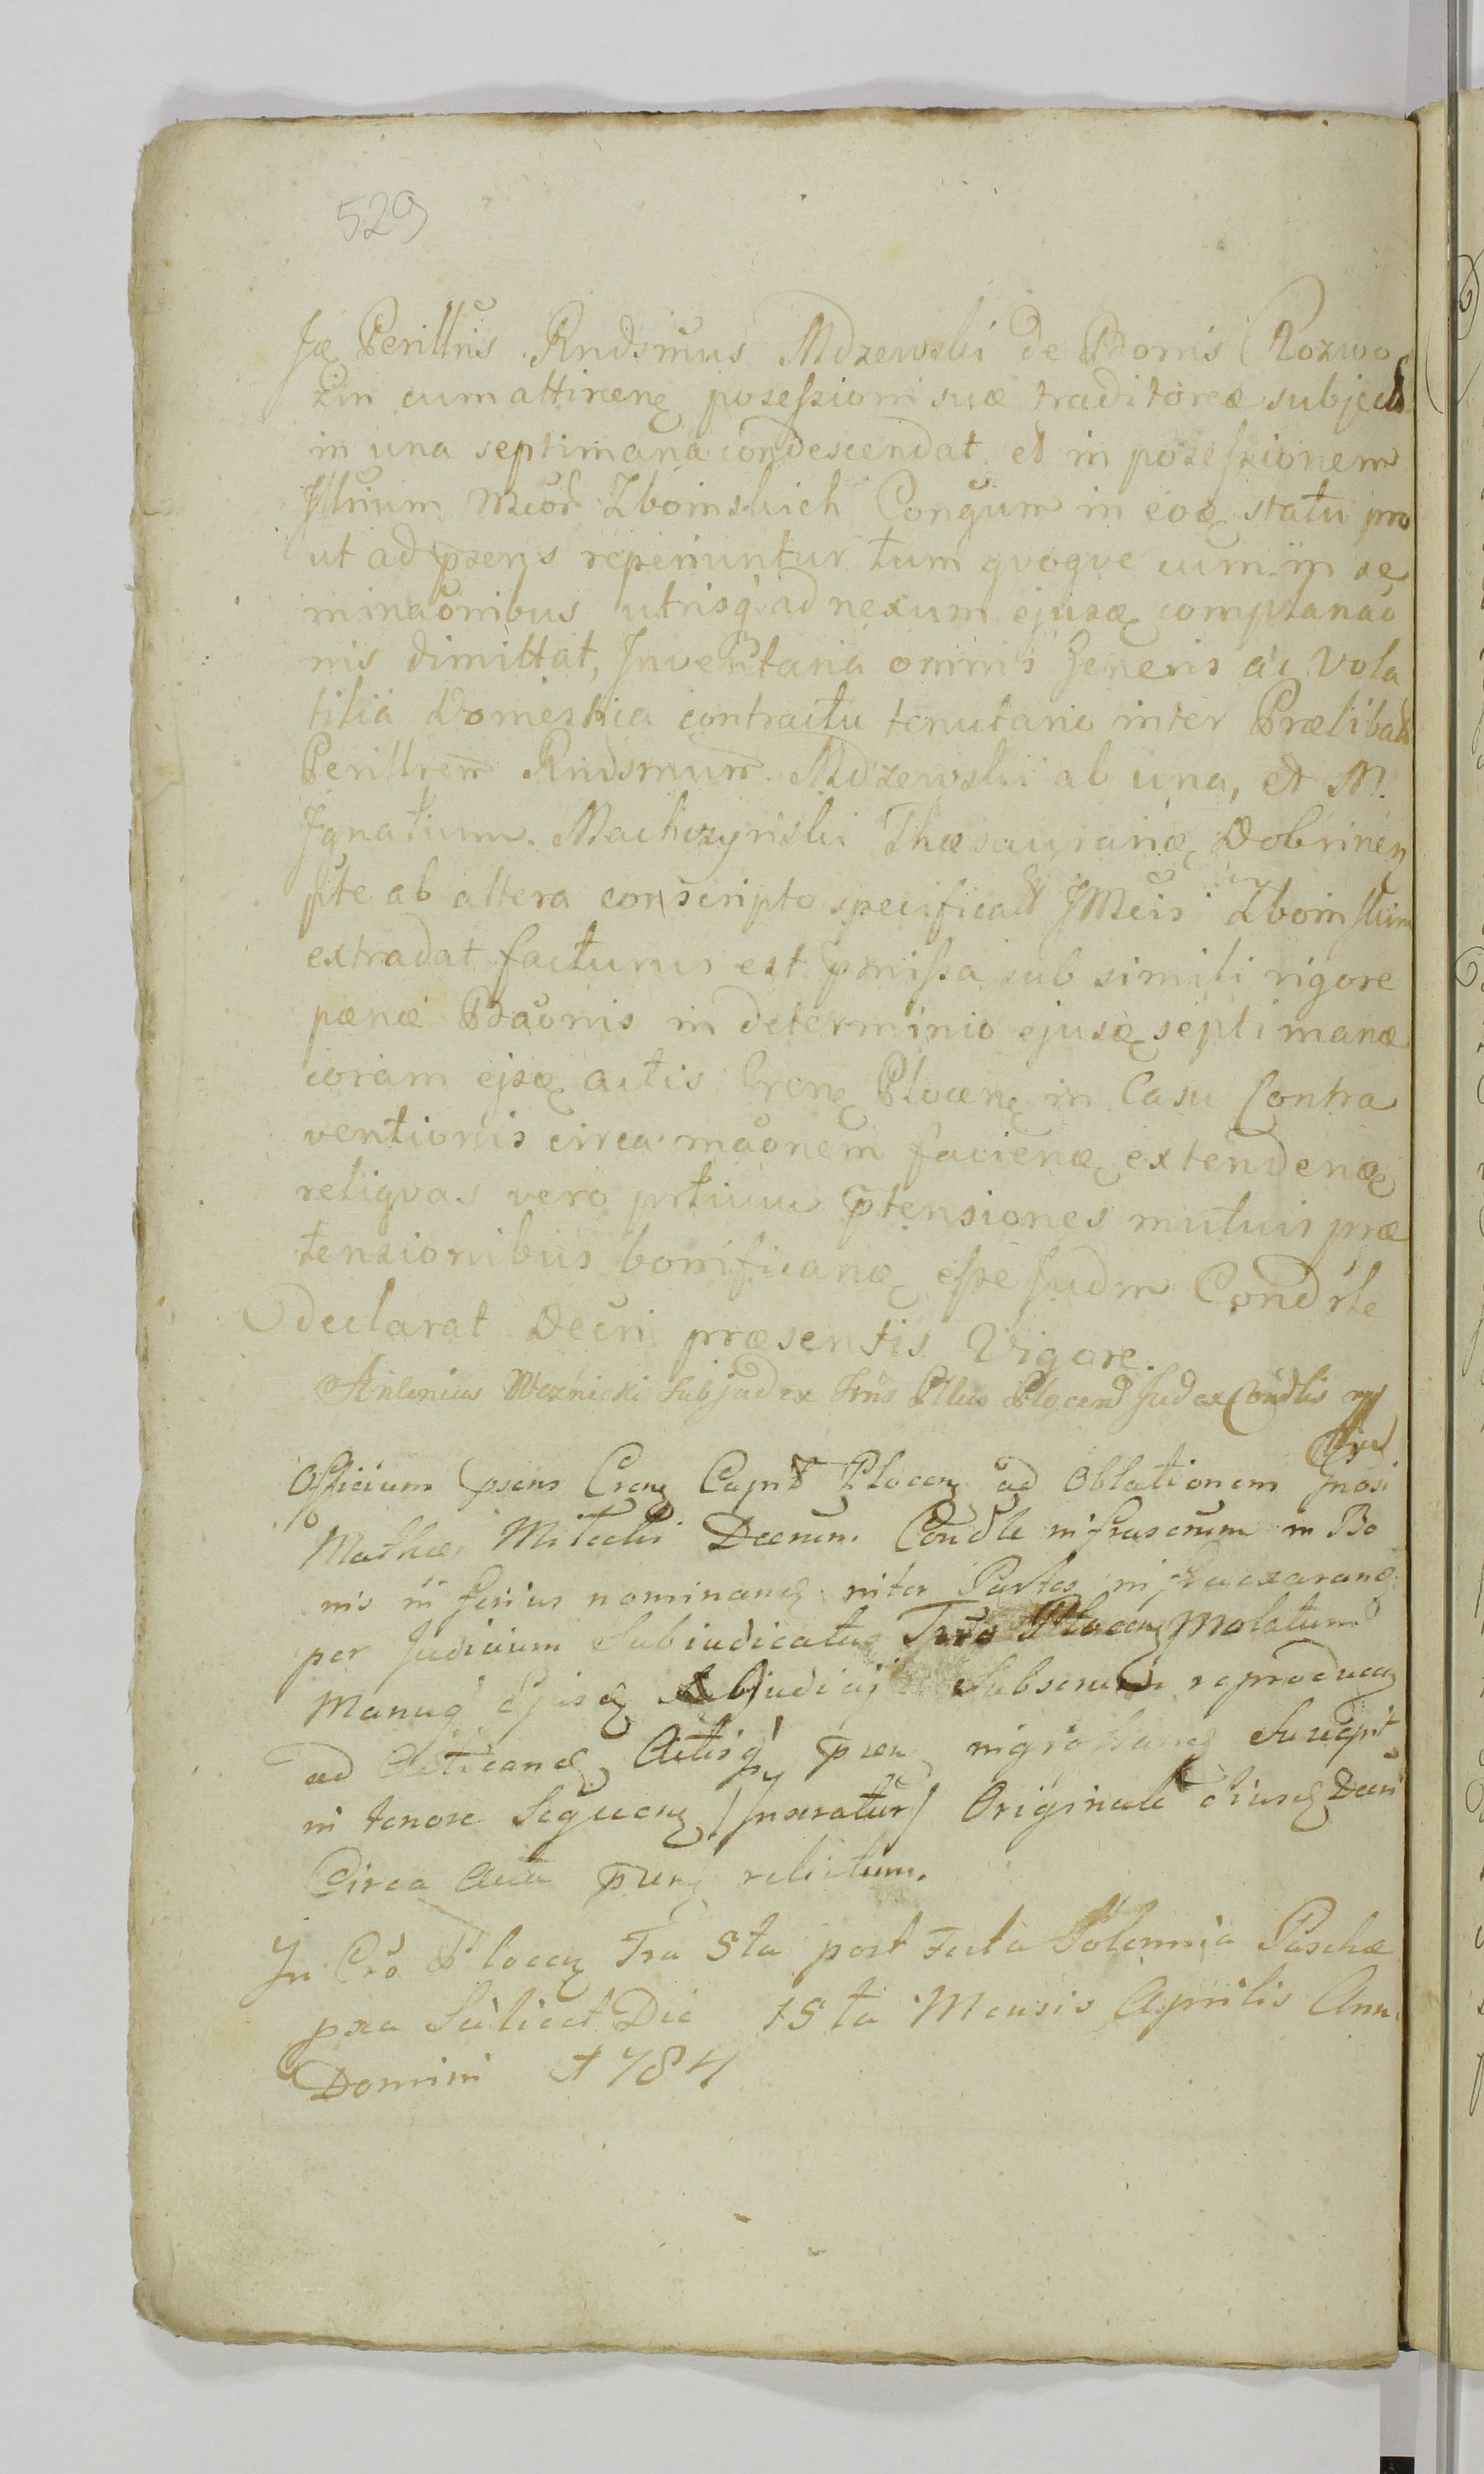 529
Perillris Rndsmus Mdzewski de Bonis Rozwo
zin cum attinenę poseſsioni suæ traditoreæ subject
in una septimana condescendat et in poseſsionem
Illrium Mcor Zboinskich Conġum in eoę statu pro
ut ad præns reperiuntur tum qvoqve cum in se
minaonibus utrisq ad nexum ejusę complanao
nis dimittat, Inventaria omnis Generis ac Vola
tilia Domestica contractu tenutario inter Prælibat
Perillrem Rndsmum Mdzewski ab una, et M.
Ignatium Machczynski Thæsaurariæ Dobrinenę
pte ab altera conscripto specificatt JMcis Zboinskim
extradat facturus est pmiſsa sub simili rigore
pænæ Baonis in determinio ejusę septimanæ
coram ejsę actis Crenę Plocenę in Casu Contra
ventionis circa maonem facienę extendenę
reliqvas vero prtium ptensiones mutuis præ
tensionibus bonificanę eſse Judm Condrle
declarat Decri præsentis Vigore.
Antonius Woznicki Subjudex Trris Pllus Plocens Judex Condlis mp
Officium præns Crenę Capit Plocenę ad Oblationem Gnosi
Mathæi Mitecki Decrum Condle infrascrum in Bo
nis inferius nominanę inter Partes infraexaranę
per Judicium Subjudicatus Trris Plocenę prolatum
Manuq ejusę Subjudicis Subscrum reproducenę
ad Acticanę Actisq præn ingrossanę Suscepit
in tenore Sequenę /Inseratur/ Originale eiusę Decri
Circa Acta præn relictum.
In Cro Plocenę Fra 5ta post Festa Solemnia Paschæ
pxa Scilicet Die 15ta Mensis Aprilis Ann.
Domini 1784